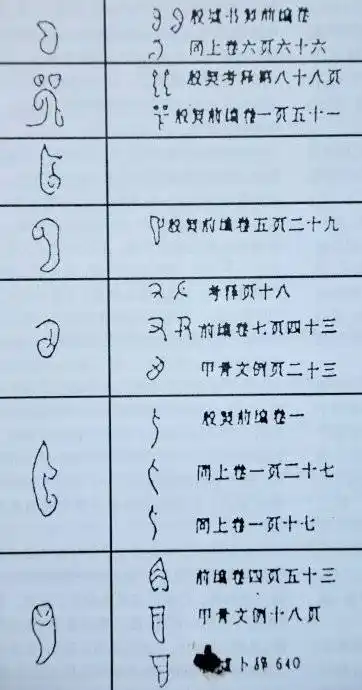 殷墟书契前编卷
同上卷六页六十六
殷契考释第八十八页
殷契前编卷一页五十一
殷契前编卷五页二十九
考释页十八
前编卷七页四十三
甲骨文例页二十三
殷契前编卷一
同上卷一页二十七
同上卷一页十七
前编卷四页五十三
甲骨文例十八页
卜辞 640